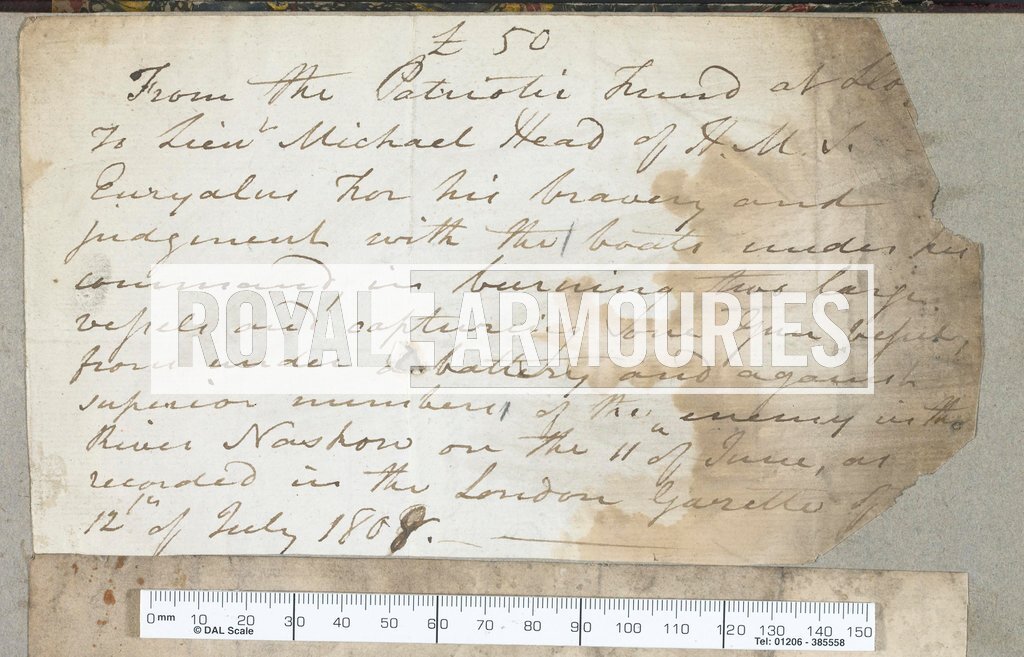 £ 50
From the Patriotic Fund at Llo
To Lieut Michael Head of H. M. S.
Euryalus For his bravery and
judgement with the boats under his
command in burning two large
vessels and capturing one Gun vessel,
from under a battery and against
superior numbers of the enemy in the
River Naskon on the 11th of June, as
recorded in the London Gazette of
12th of July 1808.
ROYAL ARMOURIES
0 mm 10 20 30 40 50 60 70 80 90 100 110 120 130 140 150
© DAL Scale
Tel: 01206 - 385558